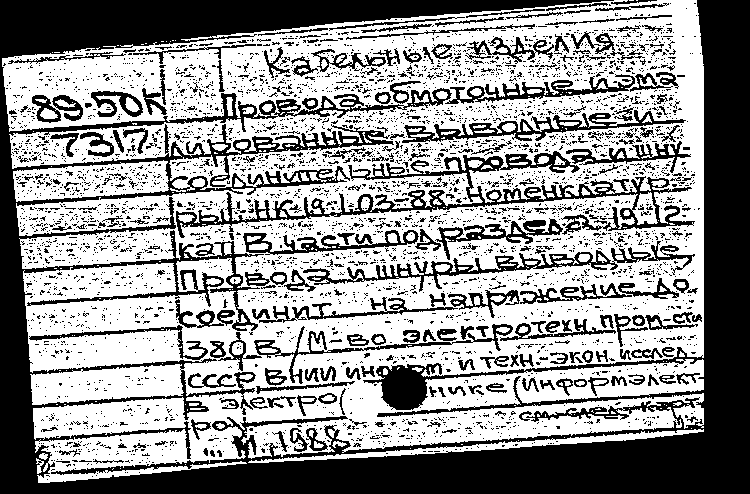 Кабельные изделия
89-50К Провода обмоточные и эма-
7317 лированные, выводные и
соединительные провода и шну-
ры: НК 19.1.03-88: Номенклатур.
кат. В части подраздела 19.12
Провода и шнуры выводные,
соединит. на напряжение до
380 В / М-во электротехн. пром-сти
СССР, ВНИИ информ. и техн.-экон. исслед.
в электро нике (Информэлект
ро).
... М., 1988
см. след. карт.